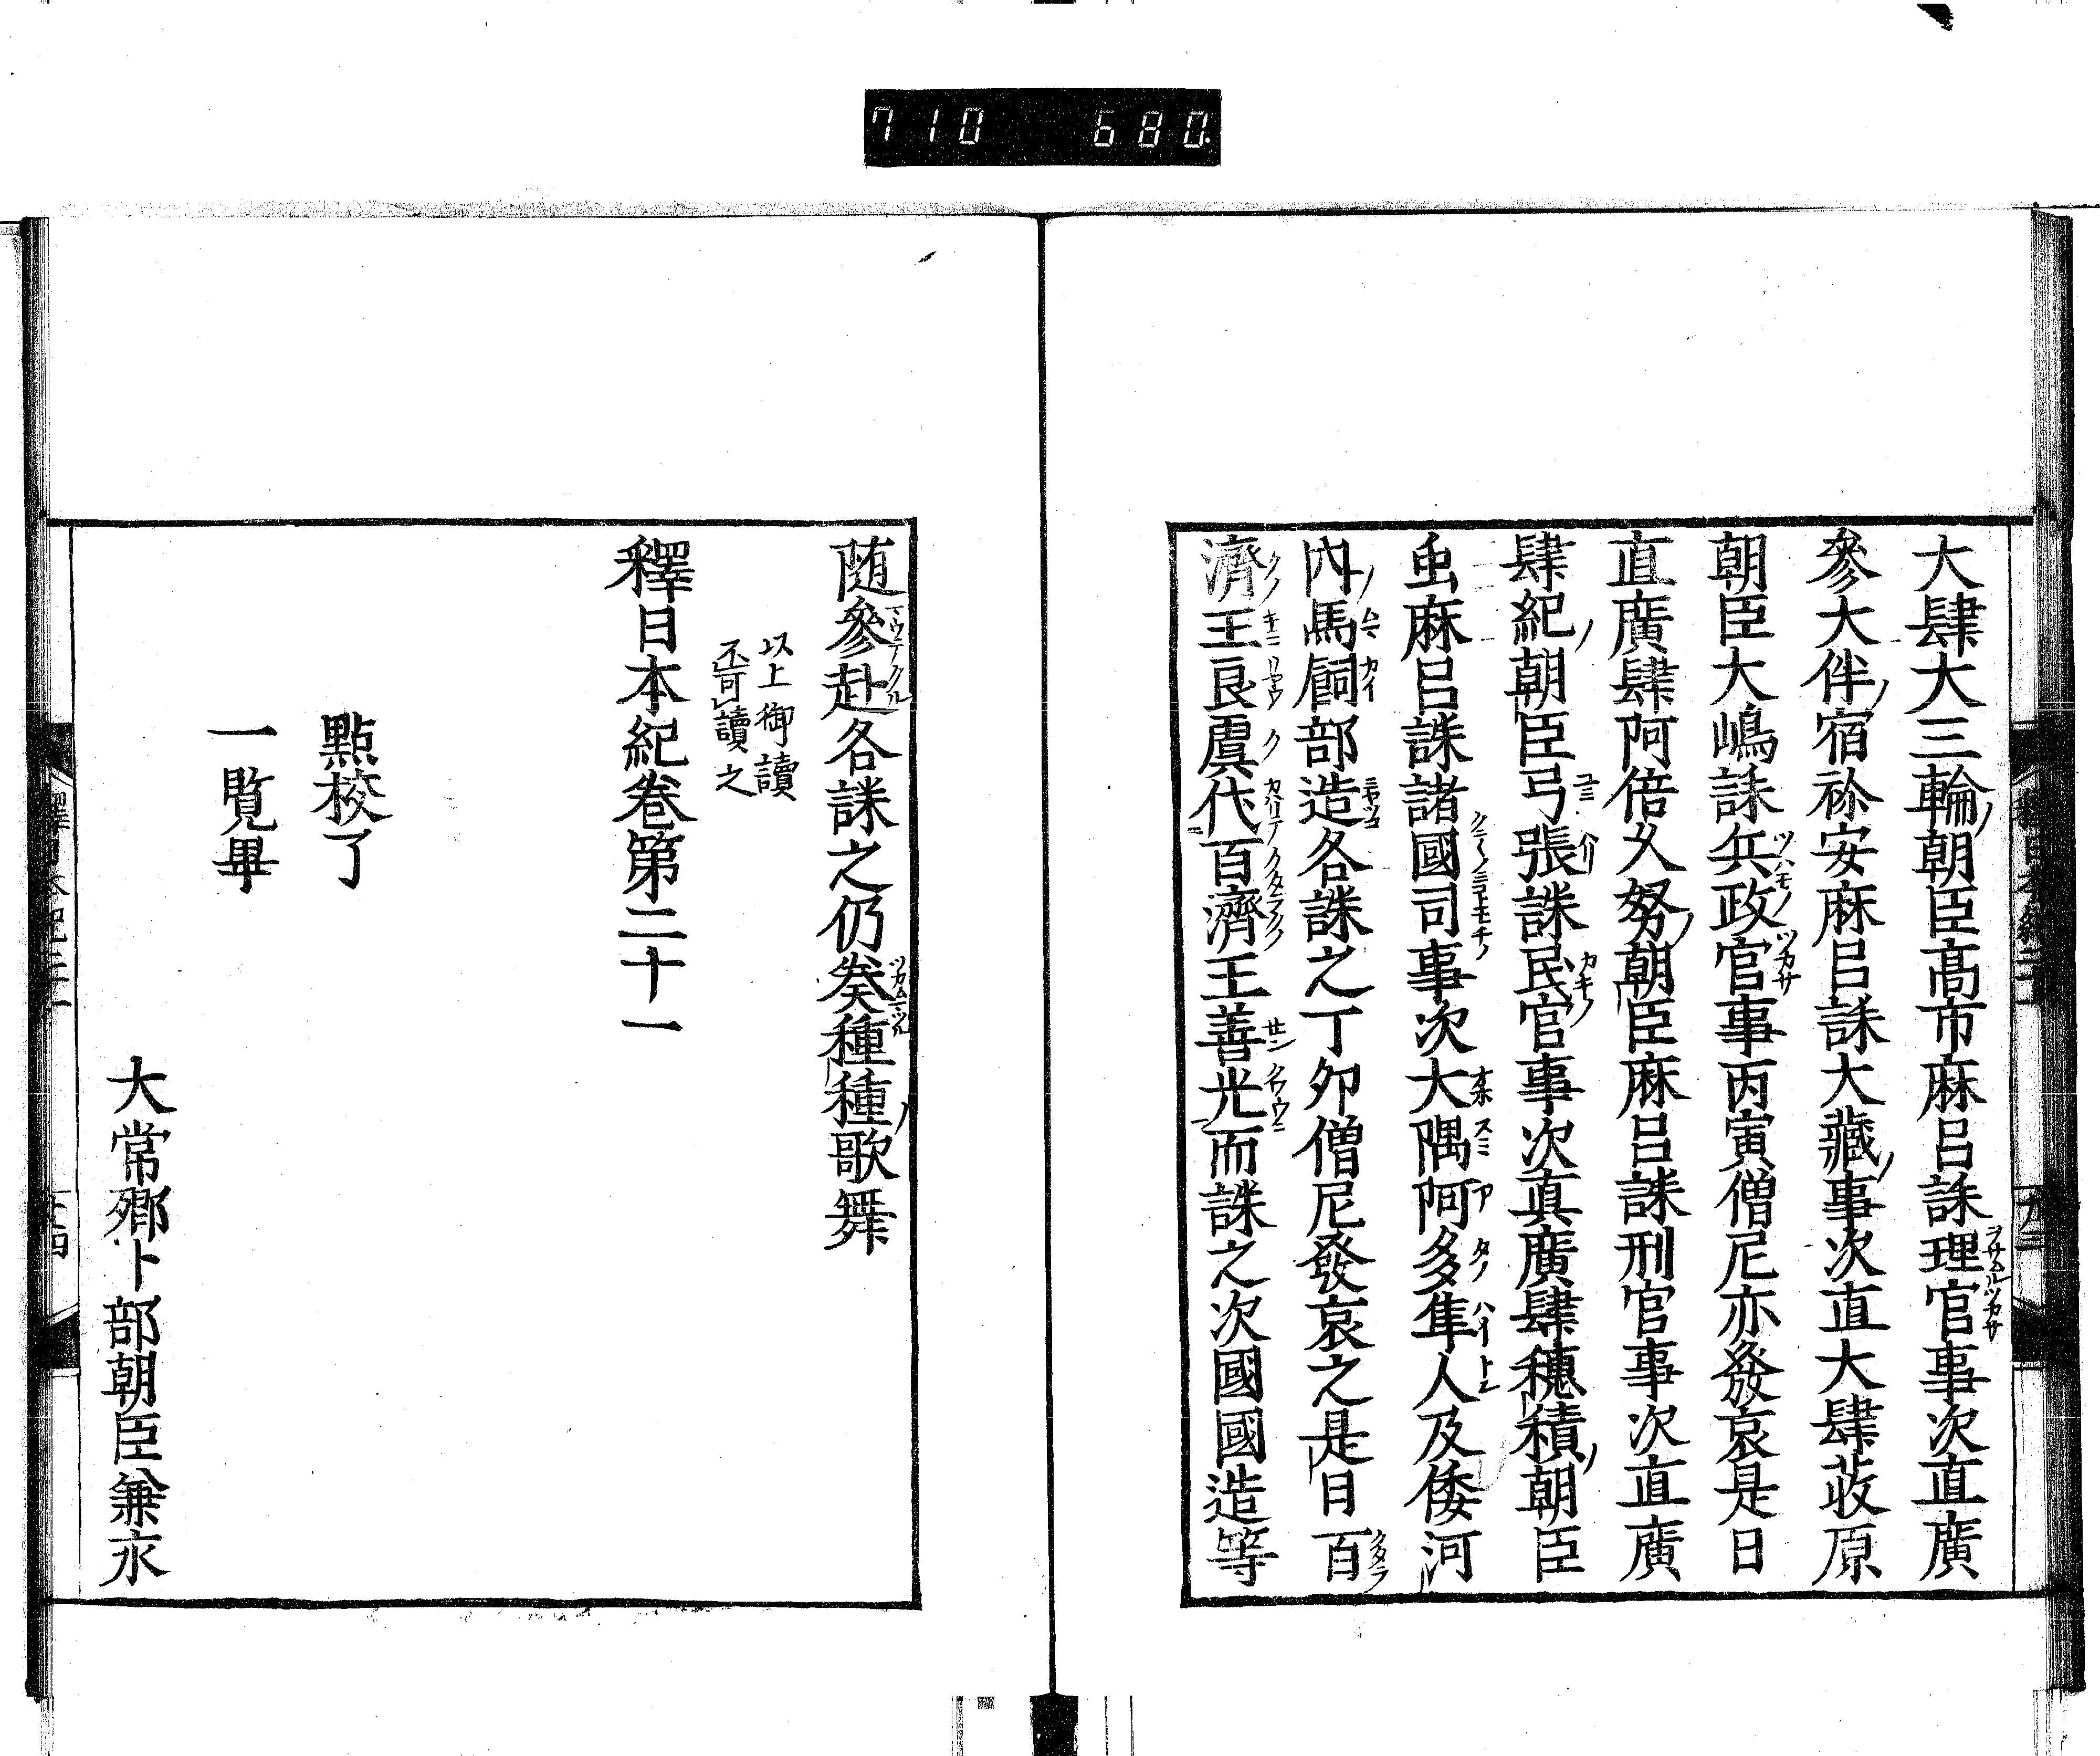 710 680.
大肆大三輪朝臣髙市麻呂誄理官事次直廣
參大伴宿祢安麻呂誄大藏事次直大肆藤原
朝臣大嶋誄兵政官事丙寅僧尼亦發哀是日
直廣肆阿倍久努朝臣麻呂誄刑官事次直廣
肆紀朝臣弓張誄民官事次直廣肆穗積朝臣
虫麻呂誄諸國司事次大隅阿多隼人及倭河
內馬飼部造各誄之丁卯僧尼發哀之是日百
濟王良虞代百濟王善光而誄之次國國造等
随參赴各誄之仍奏種種歌舞
以上御讀
不可讀之
釋日本紀卷第二十一
點校了
一覧畢
大常卿卜部朝臣兼永